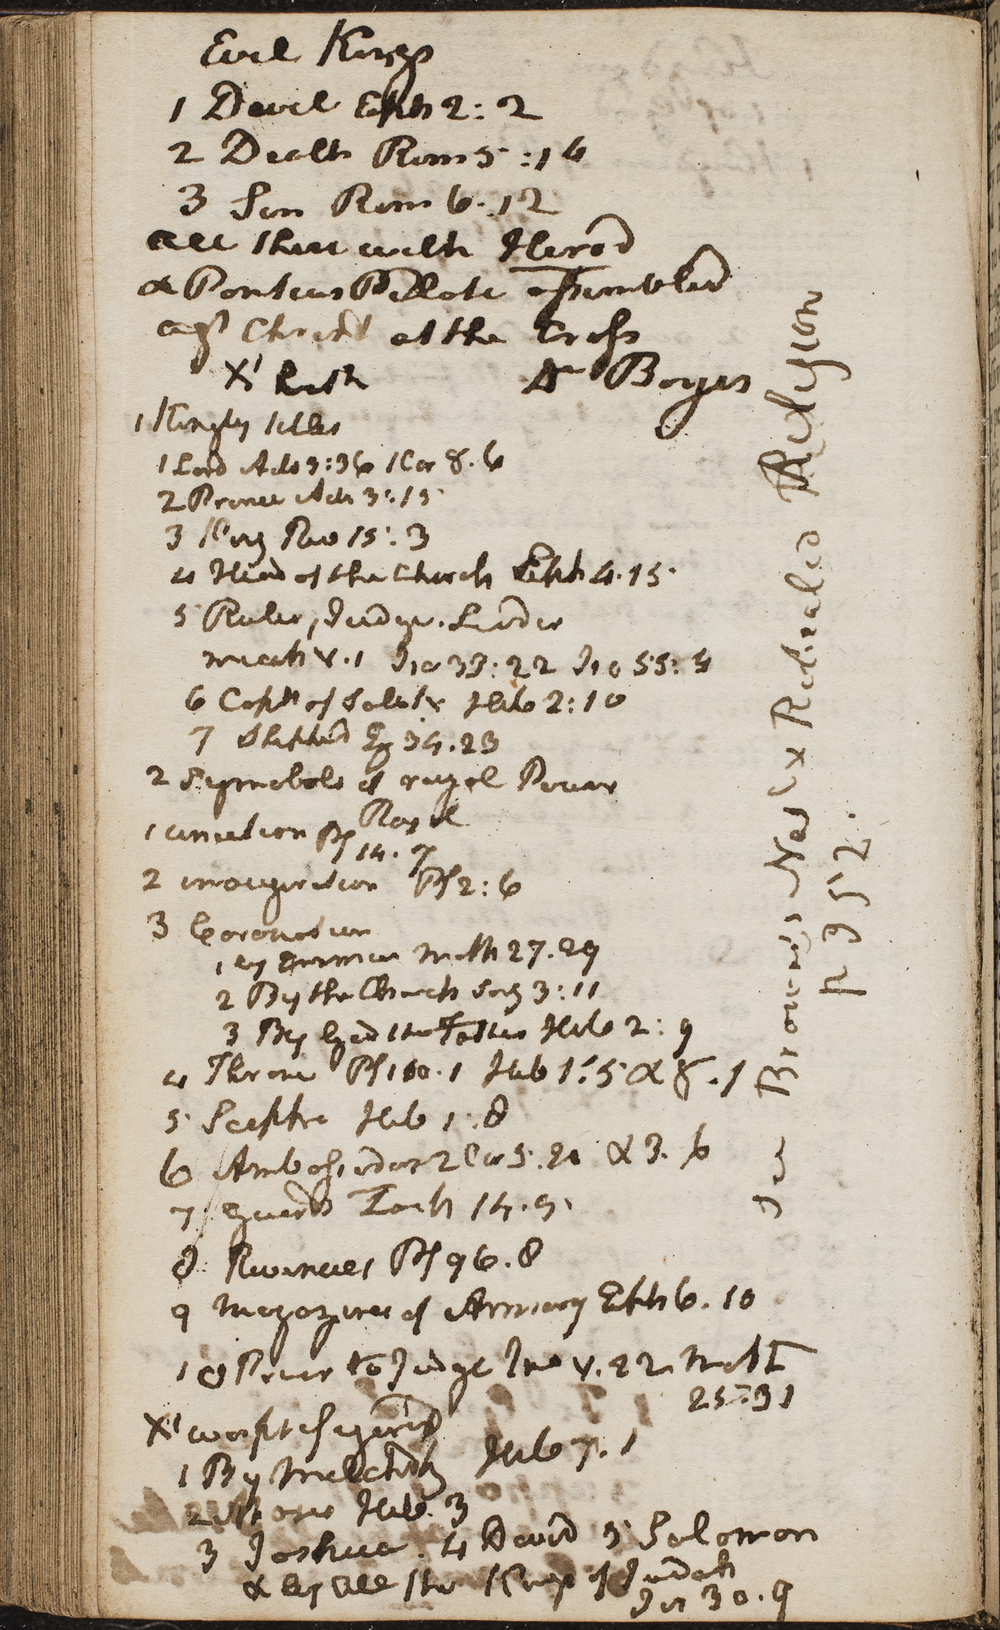 Evil Kings
1 Devil Eph 2: 2
2 Death Rom 5:14
3 Sin Rom 6.12
all these with Herod
& Pontius Pilate assembled
agst Christ at the Cross
Xt hath Dr Boyes
1 Kingly titles
1 Lord Acts 2:36 1 Cor 8.6
2 Prince Acts 3:15
3 King Rev 15:3
4 Head of the Church Eph 4.15
5 Ruler, Judge. Leader
micah v.1 Isa 33:22 Isa 55:4
6 Captn of Salv Heb 2:10
7 Shepherd Ez 34.23
2 Symbols of regal Power
1 unction Royal
Ps 14.7
2 inauguration Ps 2:6
3 Coronation
1 by Math 27.29
2 By the Church Song 3:11
3 By God the Father Heb 2:9
4 Throne Ps 110.1 Heb 1:5 & 8.1
5 Sceptre Heb 1:8
6 Ambassadors 2 Cor 5.20 & 3.6
7 guards Zach 14.5
8 Revenues Ps 96.8
9 magazines of Armory Eph 6.10
10 Power to Judge Jno v.22 Matt
25:31
Xt was prefigured
1 By Melchiz Heb 7.1
2 Moses Heb. 3
3 Joshua. 4 David 5 Solomon
& by all the Kings of Judah
Jer 30.9
Jno Browns Nat & Revealed Religion
p 352.